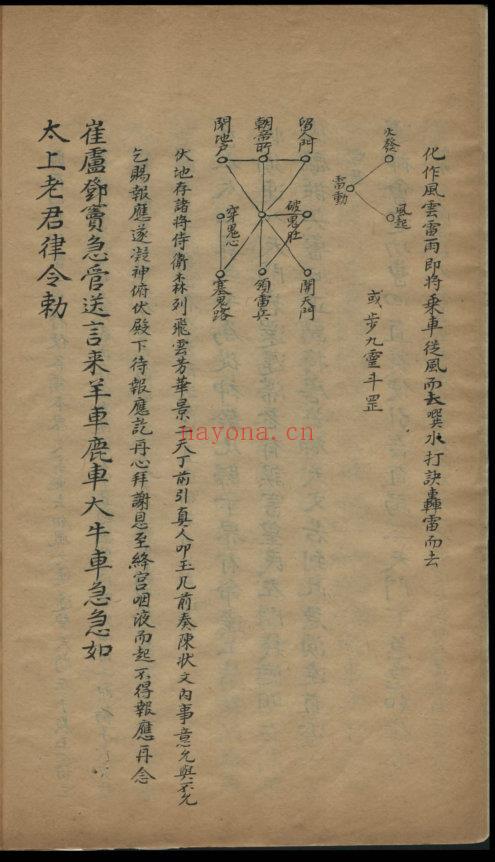 化作風雲雷雨即將乘車從風而去噀水打訣轟雷而去
火發
雷動
風起
或步九靈斗罡
留人門
朝帝所
閉地戶
破鬼肚
穿鬼心
開天門
領雷兵
塞鬼路
伏地存諸將侍衛森列飛雲芳華景二天丁前引真人叩玉几前奏陳狀文內事意允與不允
乞賜報應遂凝神俯伏殿下待報應訖再心拜謝恩至絳宮咽液而起不得報應再念
崔盧鄧竇急管送言来羊車鹿車大牛車急急如
太上老君律令勅
nayona.cn